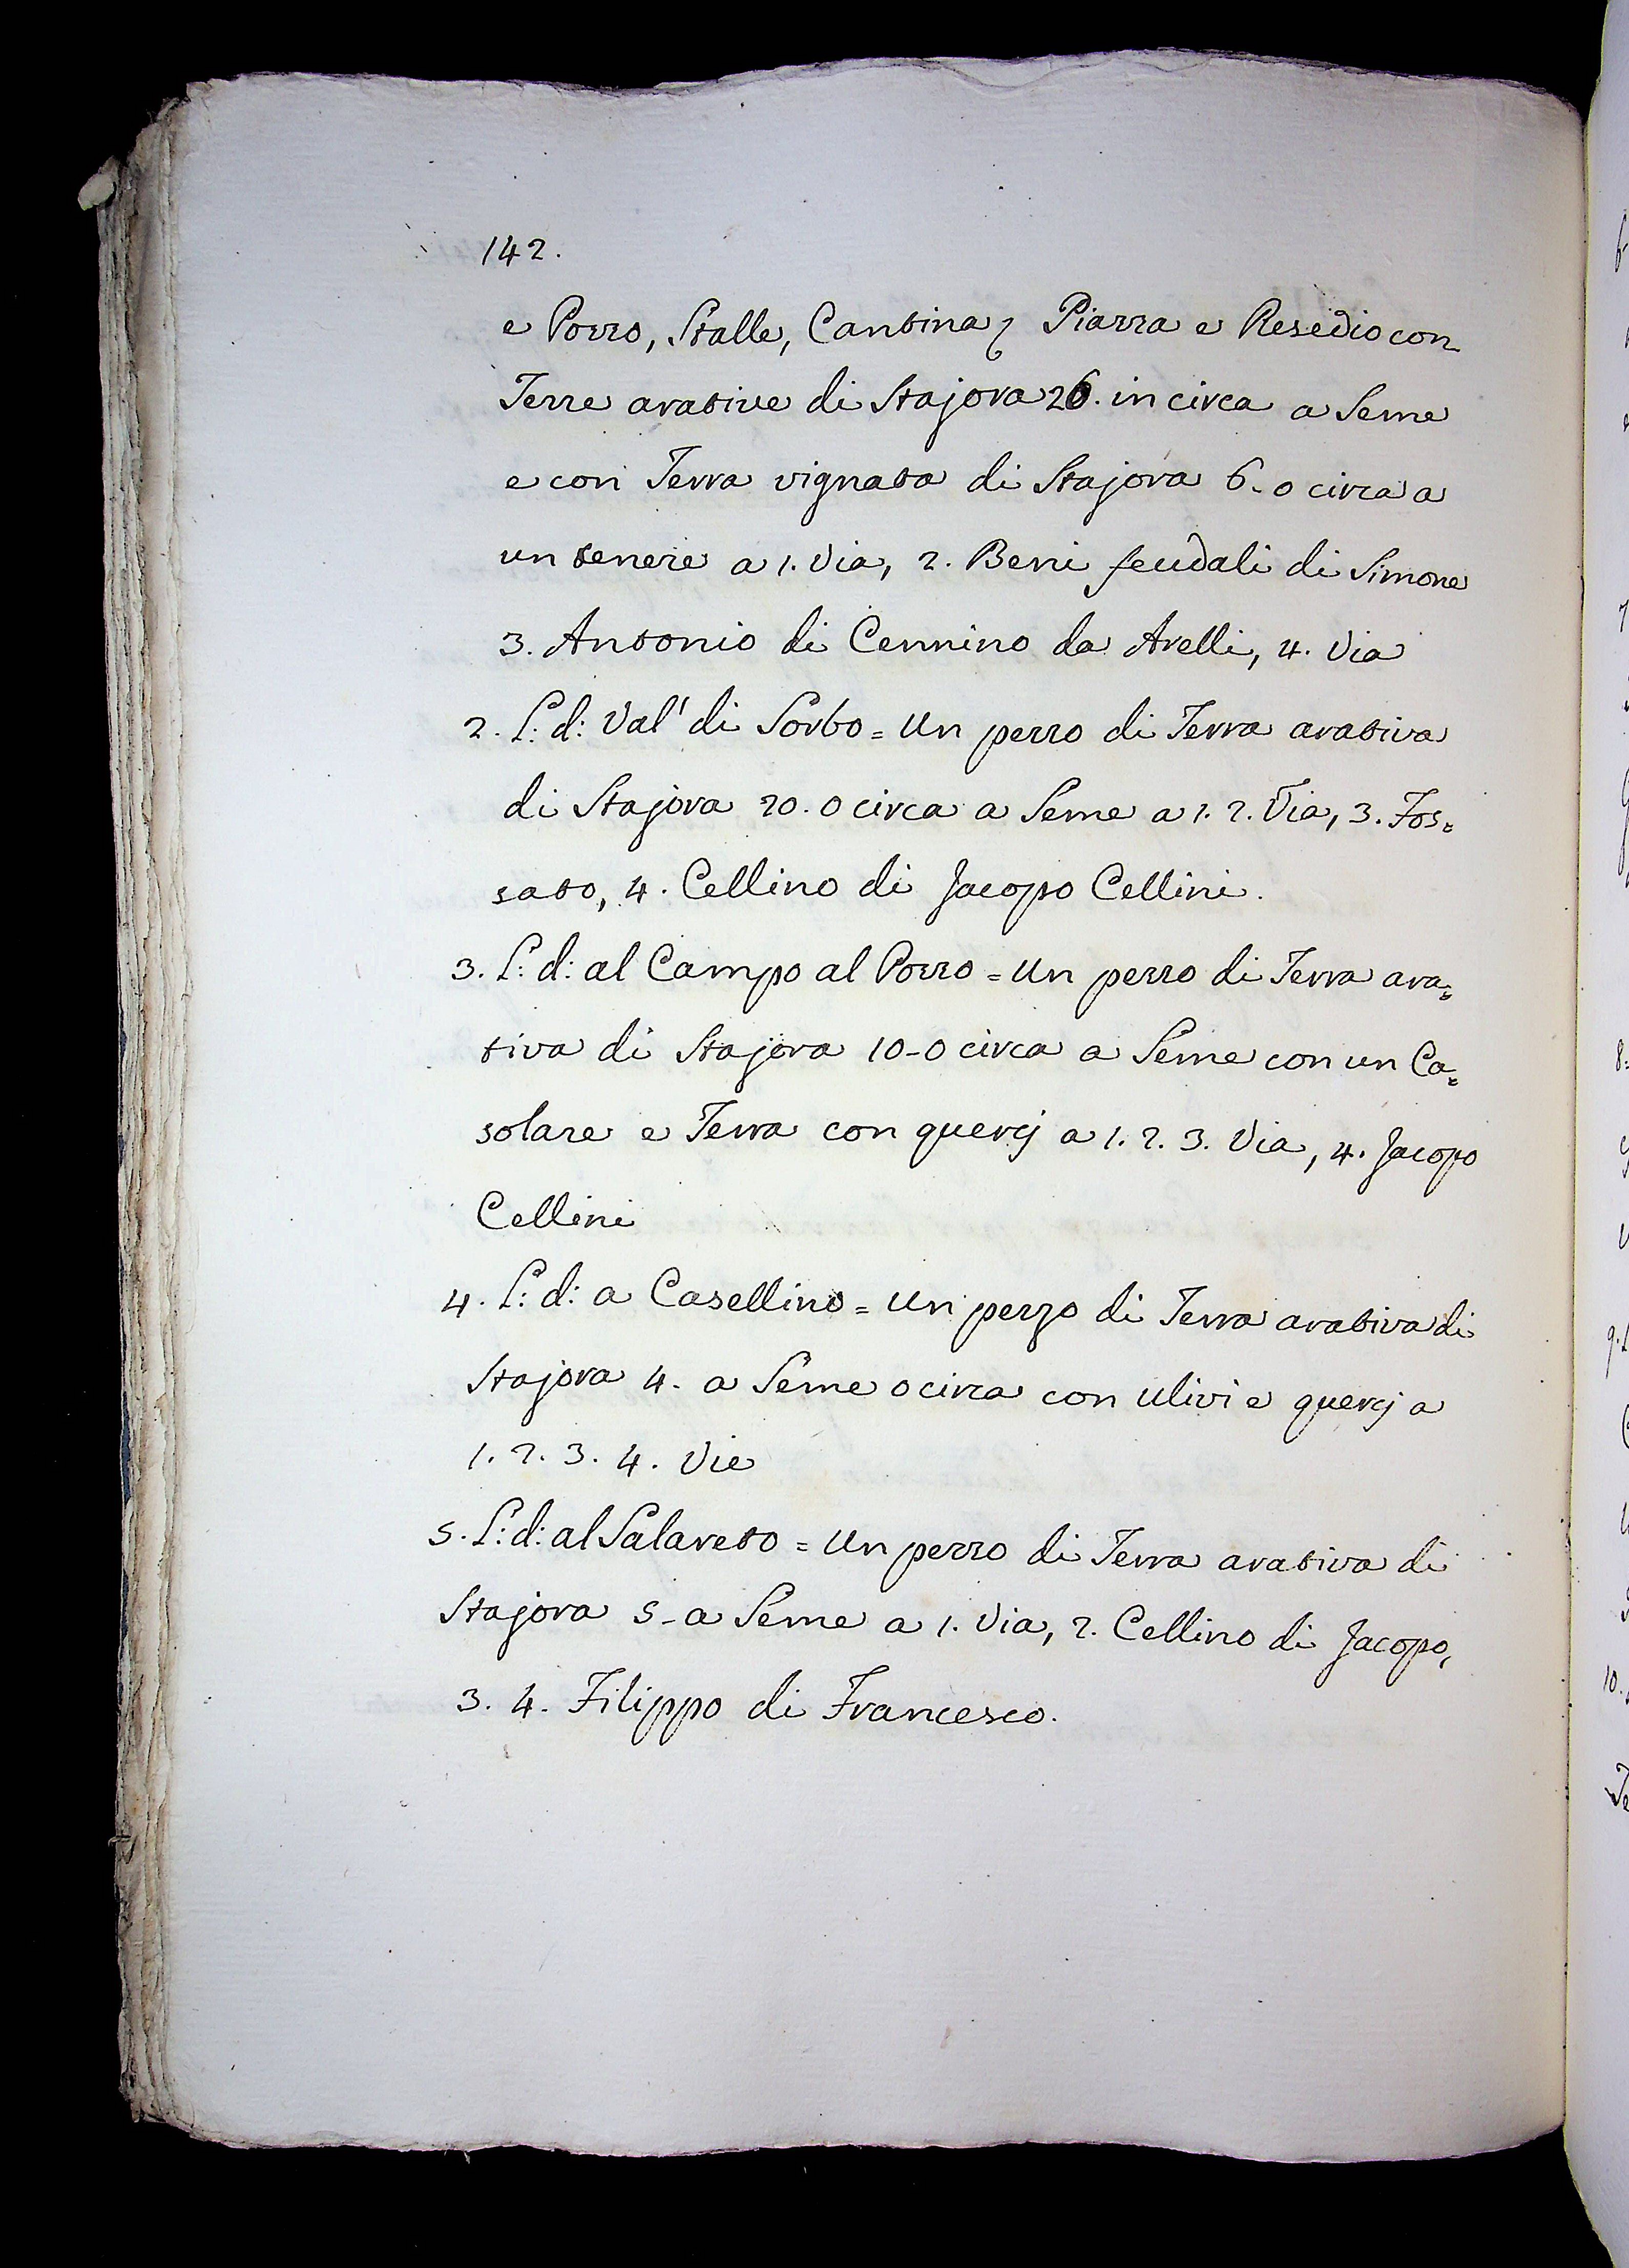 142.
e Pozzo, Stalle, Cantina, Piazza e Resedio con
Terre arative di Stajora 26. in circa a Seme
e con Terra vignata di Stajora 6. o circa a
un tenere a 1. Via, 2. Beni feudali di Simone
3. Antonio di Cennino da Avelli, 4. Via
2. L: d: Val' di Sorbo = Un pezzo di Terra arativa
di Stajora 20. o circa a Seme a 1. 2. Via, 3. Fos=
sato, 4. Cellino di Jacopo Cellini.
3. L: d: al Campo al Pozzo = Un pezzo di Terra ara=
tiva di Stajora 10 - o circa a Seme con un Ca=
solare e Terra con quercj a 1. 2. 3. Via, 4. Jacopo
Cellini
4. L: d: a Casellino = Un pezzo di Terra arativa di
Stajora 4. a Seme o circa con Ulivi e quercj a
1. 2. 3. 4. Vie
5. L: d: al Salareto = Un pezzo di Terra arativa di
Stajora 5 - a Seme a 1. Via, 2. Cellino di Jacopo,
3. 4. Filippo di Francesco.